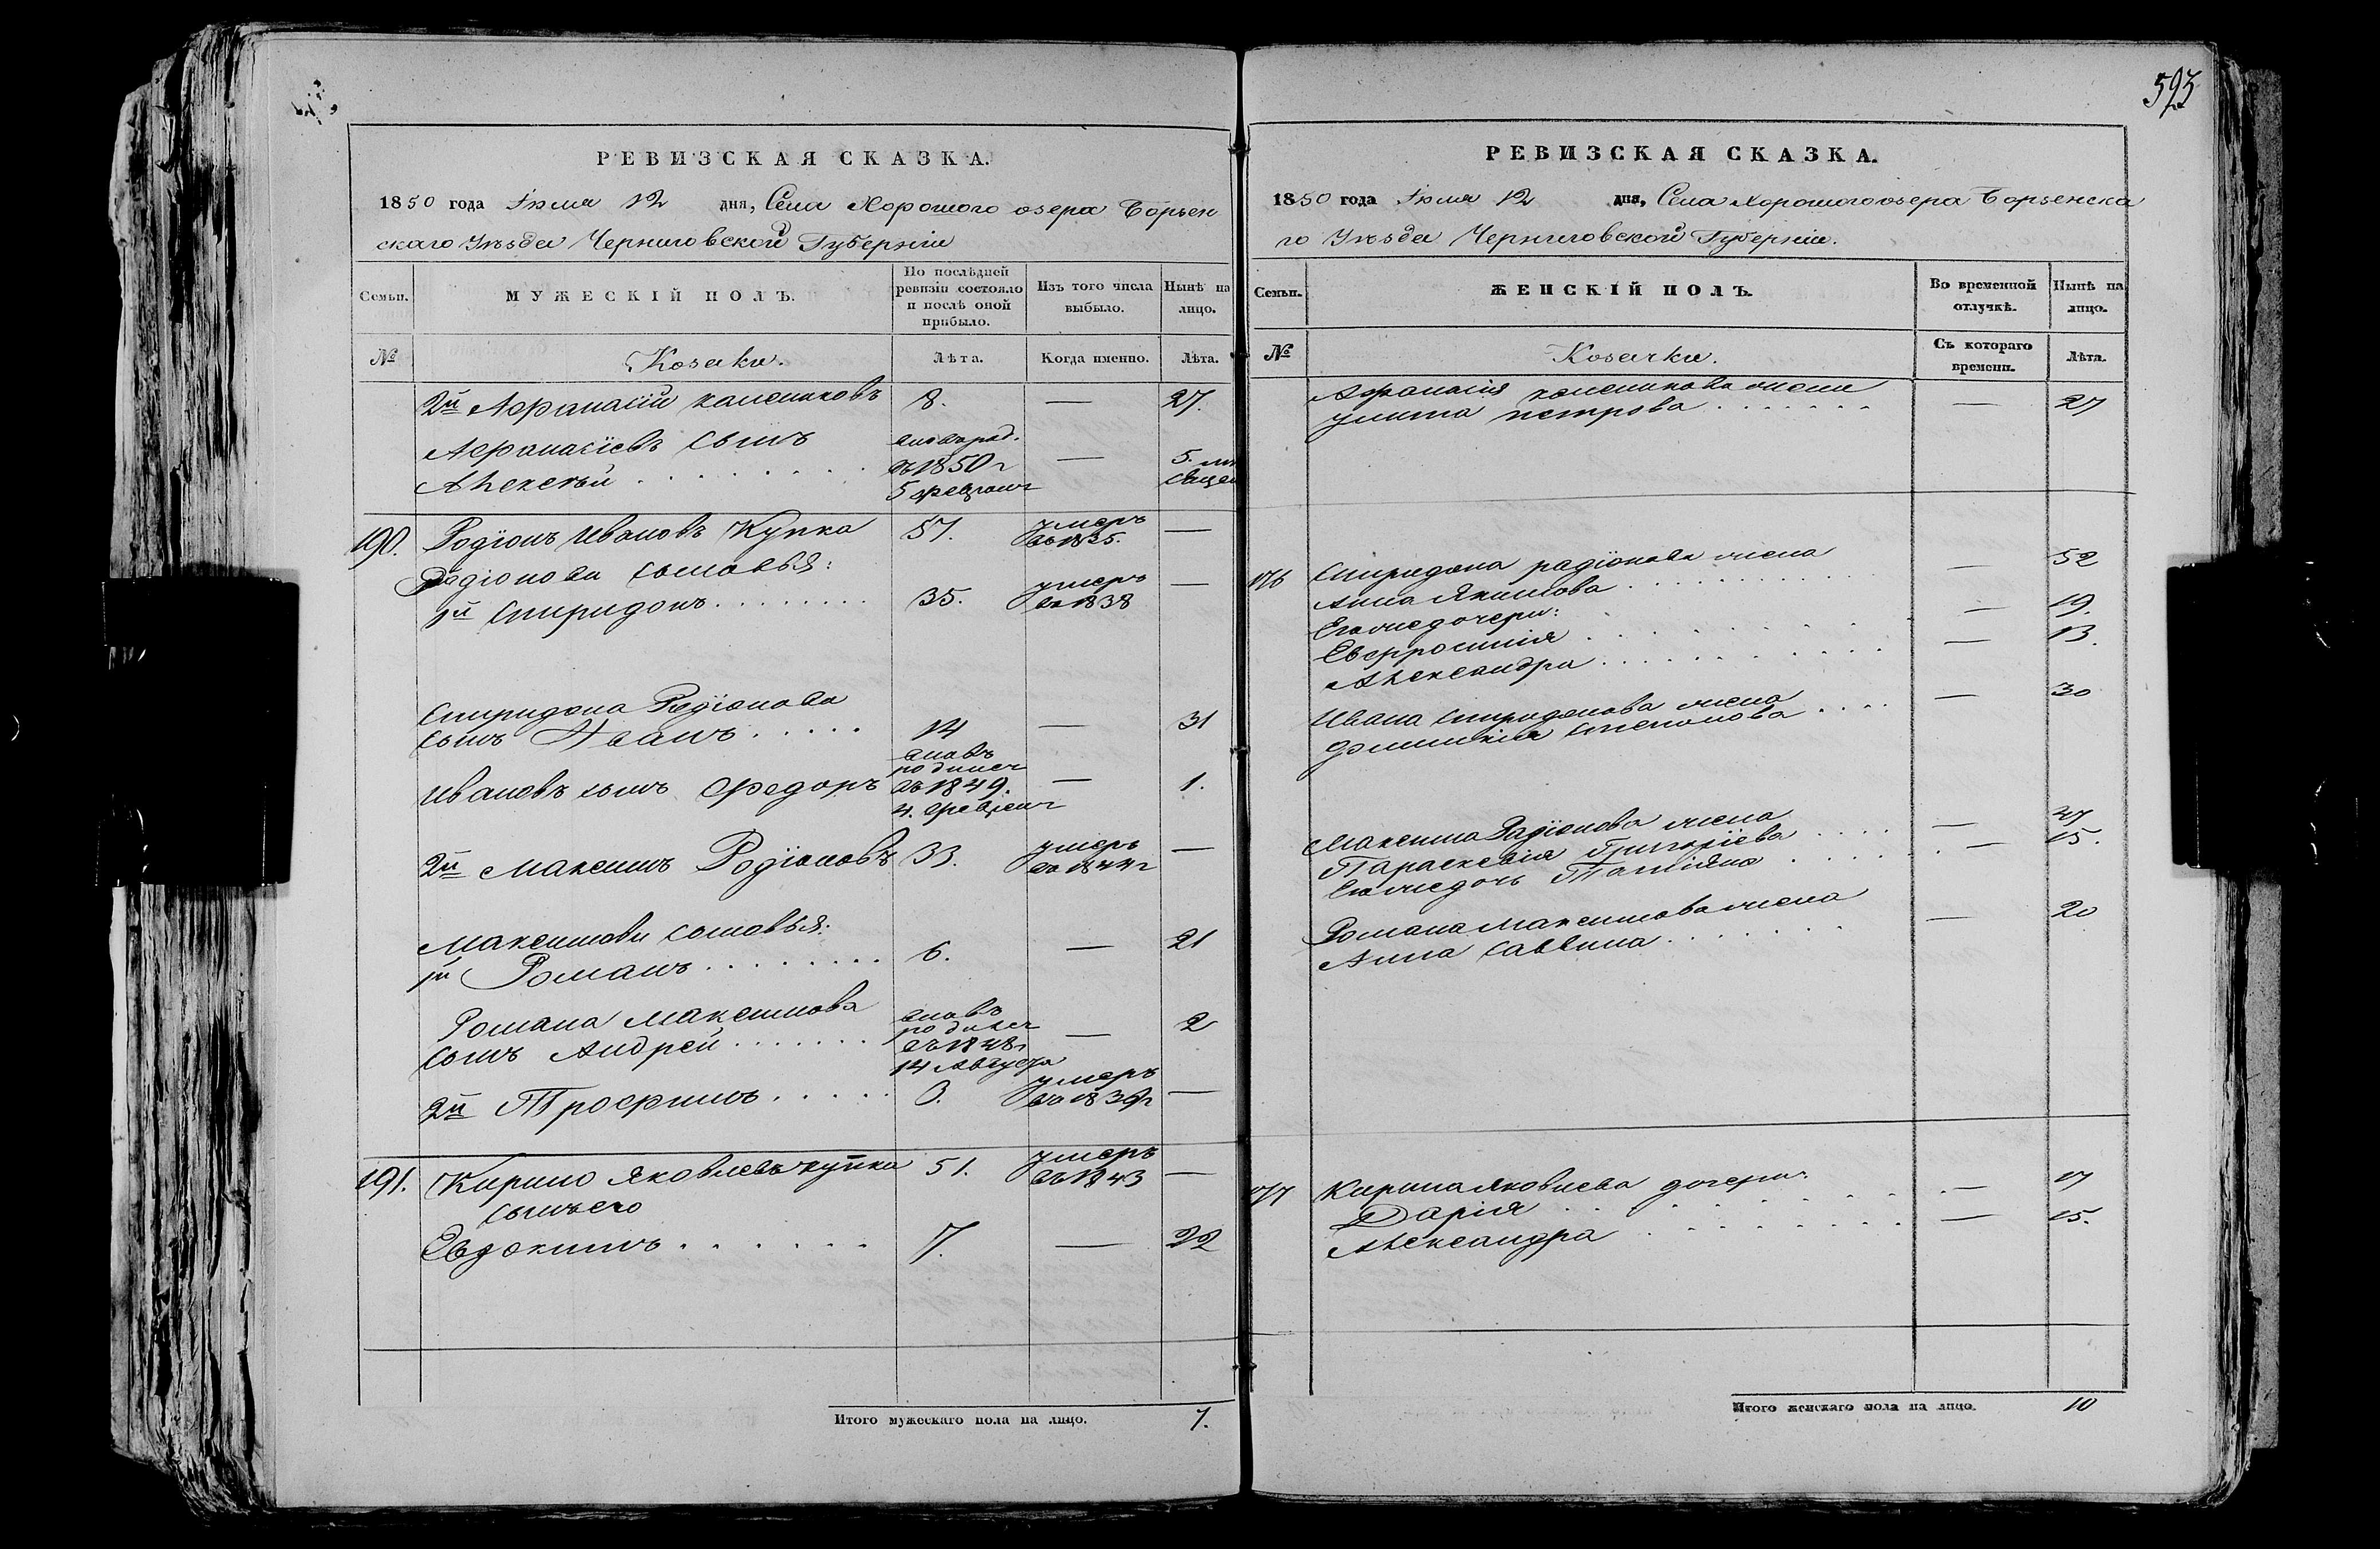 593
РЕВИЗСКАЯ СКАЗКА.
1850 года Іюля 12 дня, Села Хорошого озера Борзен
скаго Уѣзда Черниговской Губерніи
Семьи.
МУЖЕСКІЙ ПОЛЪ.
По послѣдней ревизіи состояло и послѣ оной прибыло.
Изъ того числа выбыло.
Нынѣ на лицо.
№
Козаки.
Лѣта.
Когда именно.
Лѣта.
2й Афанасій калениковъ 8. — 27.
Афанасіевъ сынъ
Алексѣй въ 1850 г — 5.
5 феврал
190. Родіонъ Ивановъ Купка 57. умеръ —
въ 1835.
Радіонови сыновья:
1й Спиридонъ 35. умеръ —
въ 1838
Спиридона Родіонова
сынъ Иванъ 14 — 31
Ивановъ сынъ Федоръ вновь родился въ 1849. — 1.
4. феврал
2й Максимъ Родіоновъ 33. умеръ —
въ 1844 г
Максимови сыновья:
1й Романъ 6. — 21
Романа Максимова вновь
сынъ Андрей родился въ 1848 г — 2
14 Августа
2й Трофимъ 3. умеръ —
въ 1836 г
191. Кирило Яковлевъ купка 51. умеръ —
въ 1843
сынъ его
Евдокимъ 7. — 22
Итого мужескаго пола на лицо. 7.
РЕВИЗСКАЯ СКАЗКА.
1850 года Іюля 12 дня, Села Хорошого озера Борзенска
го Уѣзда Черниговской Губерніи.
Семьи.
ЖЕНСКІЙ ПОЛЪ.
Во временной отлучкѣ.
Нынѣ на лицо.
№
Козачки.
Съ котораго времени.
Лѣта.
Афанасія каленикова жена
улита петрова — 27
176 Спиридона радіонова жена
Анна Якимова — 52
Егоже дочери:
Евфросинія — 19.
Александра — 13.
Ивана Спиридонова жена
Домникія Степанова — 30
Максима Радіонова жена
Параскевія Григоріева — 47
Егоже дочь Татіяна — 15.
Романа Максимова жена
Анна Саввина — 20
177 Кирила Яковлева дочери:
Дарія — 17
Александра — 15.
Итого женскаго пола на лицо. 10